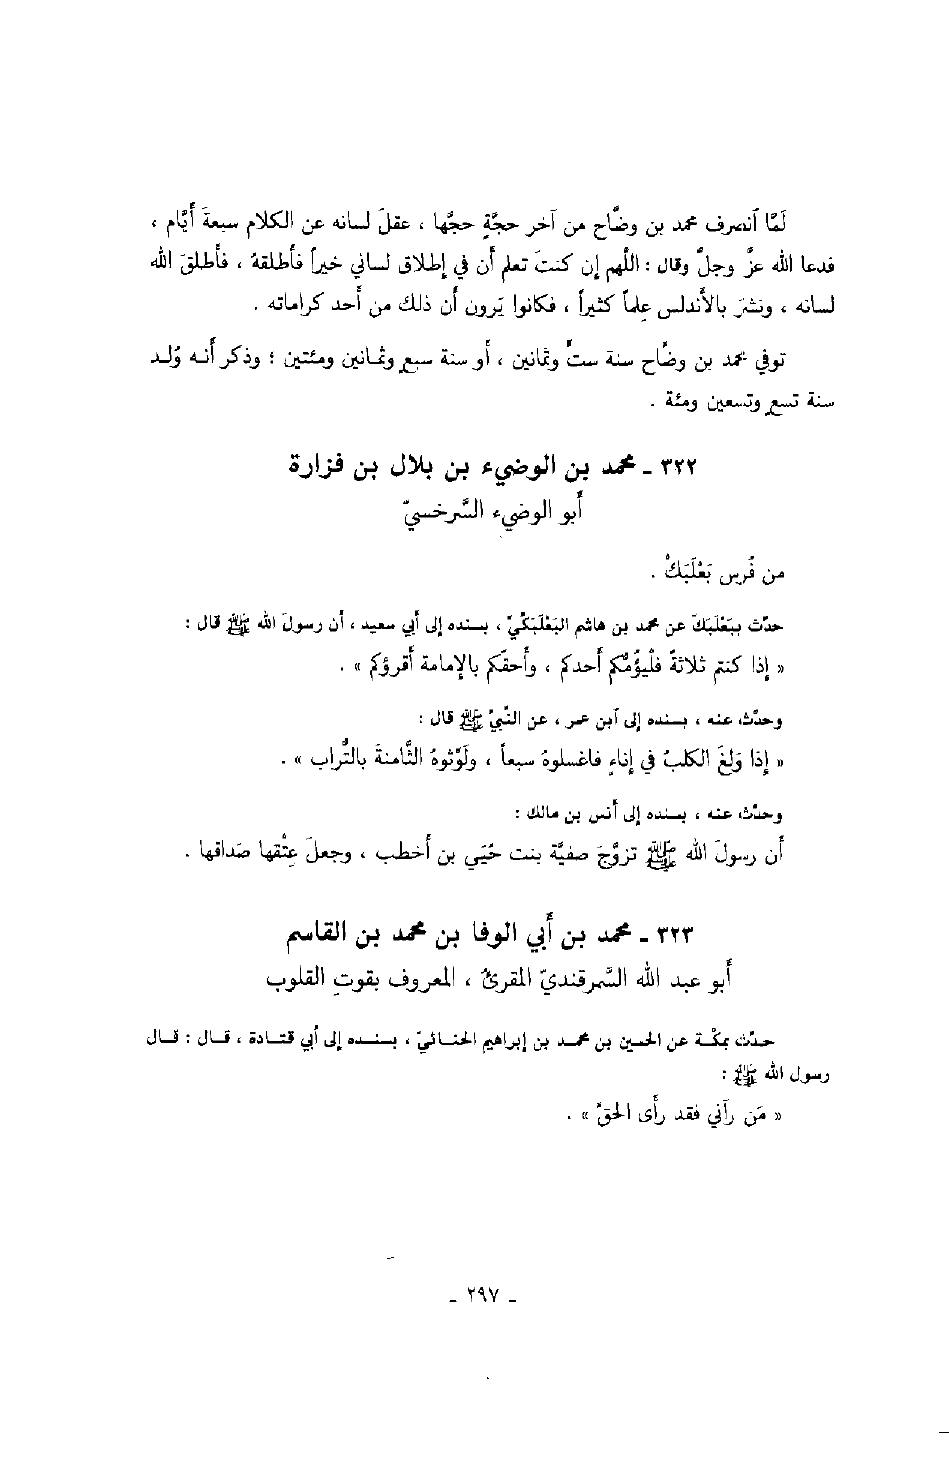 لَمَّا اَنصرف محمد بن وضَّاح من آخر حجَّةٍ حجَّها ، عقلَ لسانه عن الكلام سبعةَ أَيَّام ،
فدعا الله عزَّ وجلَّ وقال : اللَّهم إن كنتَ تعلم أن في إطلاق لساني خيراً فأطلقهُ ، فأطلقَ الله
لسانه ، ونشرَ بالأندلس علماً كثيراً ، فكانوا يَرون أن ذلك من أحد كراماته .
توفي محمد بن وضَّاح سنة ستٍّ وثمانين ، أو سنة سبعٍ وثمانين ومئتين ؛ وذكر أنه وُلد
سنة تسعٍ وتسعين ومئة .
٣٢٢ ـ محمد بن الوضيء بن بلال بن فزارة
أبو الوضيء السَّرخسيّ
من فُرس بَعْلَبَكَّ .
حدَّث ببَعْلَبَكَّ عن محمد بن هاشم البَعْلَبَكِّيّ ، بسنده إلى أبي سعيد ، أن رسولَ الله ﷺ قال :
« إذا كنتم ثلاثةً فلْيَؤُمَّكم أحدكم ، وأحقُّكم بالإمامة أقرؤكم » .
وحدَّث عنه ، بسنده إلى اَبن عمر ، عن النَّبيِّ ﷺ قال :
« إذا وَلغَ الكلبُ في إناءٍ فاغسلوهُ سبعاً ، ولَوِّثوهُ الثَّامنةَ بالتُّراب » .
وحدَّث عنه ، بسنده إلى أنس بن مالك :
أن رسولَ الله ﷺ تزوَّجَ صفيَّة بنت حُيَي بن أخطب ، وجعلَ عِتْقها صَداقها .
٣٢٣ ـ محمد بن أبي الوفا بن محمد بن القاسم
أبو عبد الله السَّمرقنديّ المقرئ ، المعروف بقوتِ القلوب
حدَّث بمكَّة عن الحسين بن محمد بن إبراهيم الحنائيّ ، بسنده إلى أبي قتادة ، قال : قال
رسول الله ﷺ :
« مَن رآني فقد رأى الحقَّ » .
ـ ٢٩٧ ـ